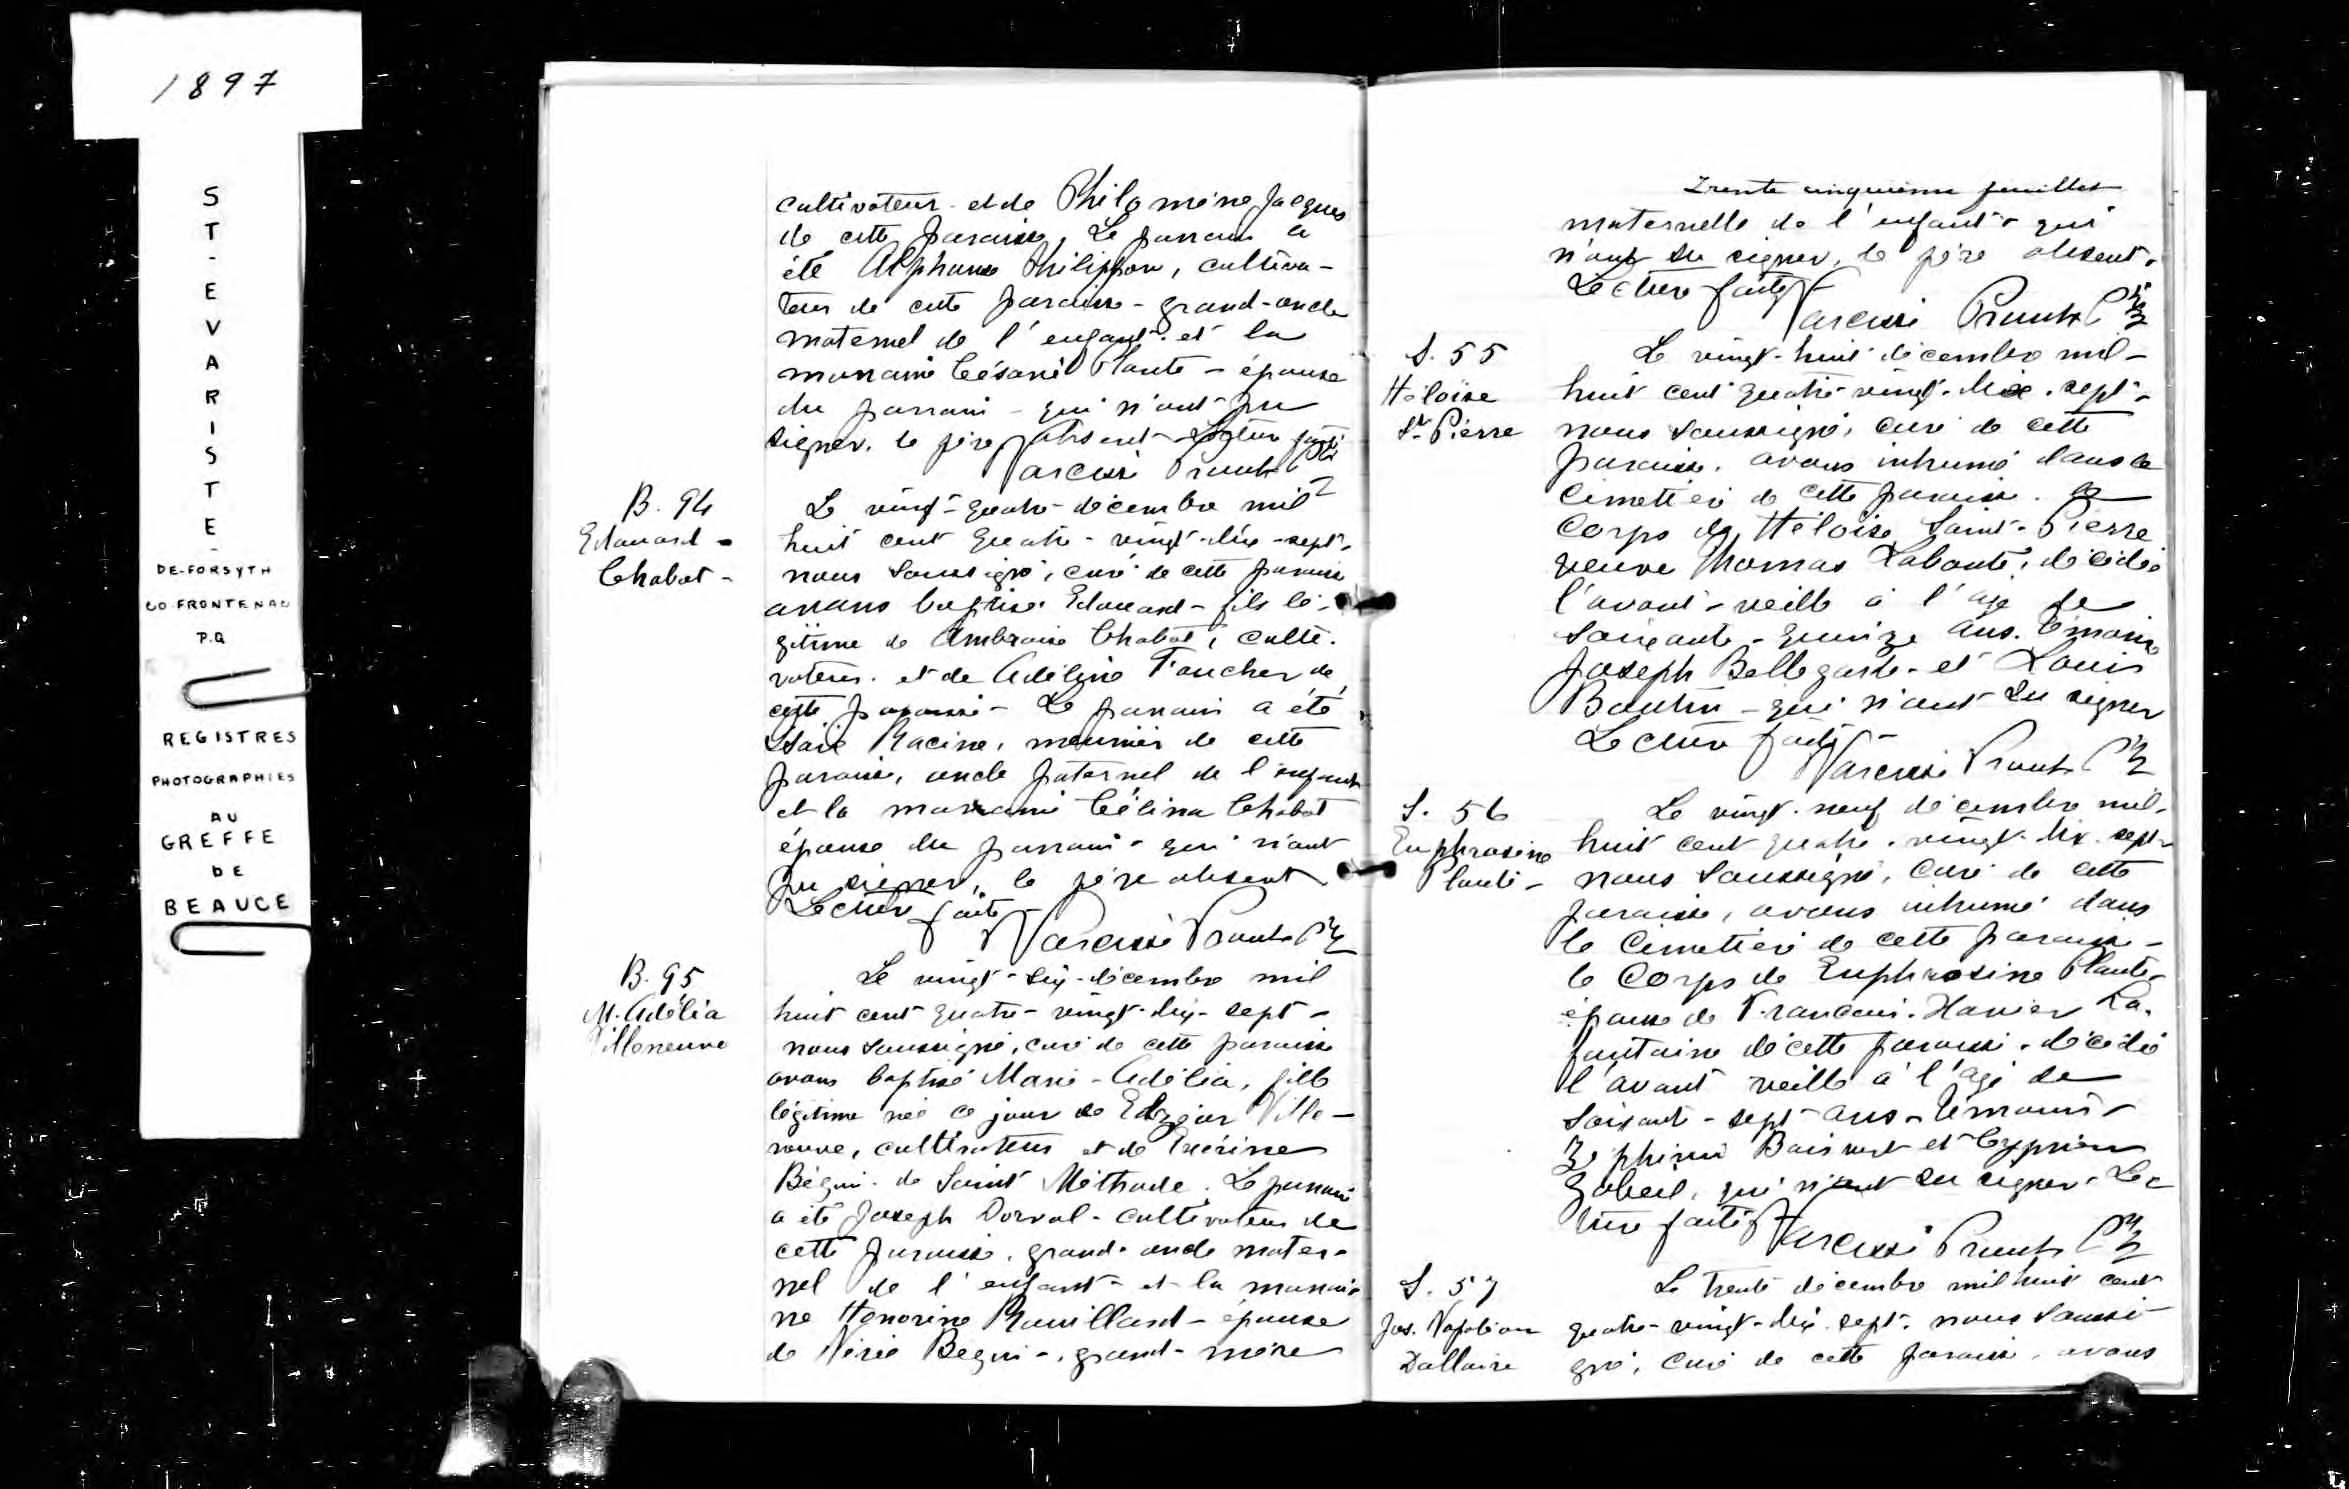 1897
ST-EVARISTE-
DE-FORSYTH
CO FRONTENAC
P.Q
REGISTRES
PHOTOGRAPHIES
AU
GREFFE
DE
BEAUCE
cultivateur et de Philomène Jacques
de cette paroisse, Le parrain a
été Alphonse Philippon, cultiva-
teur de cette paroisse - grand-oncle
maternel de l'enfant et la
marraine Césarié Plante - épouse
du parrain - qui n'ont pu
signer, le père absent - Lecture faite
Narcisse Proulx Ptre
B. 94
Edouard -
Chabot -
Le vingt-quatre décembre mil
huit cent quatre-vingt-dix-sept,
nous soussigné, curé de cette paroisse
avons baptisé Edouard - fils lé-
gitime de Ambroise Chabot, culti-
vateur. et de Adéline Faucher de
cette paroisse - Le parrain a été
Isaïe Racine, meunier de cette
paroisse, oncle paternel de l'enfant
et la marraine Célina Chabot
épouse du parrain - qui n'ont
pu signer, le père absent
Lecture faite
Narcisse Proulx Ptre
B. 95
M. Adélia
Villeneuve
Le vingt-six-décembre mil
huit cent quatre-vingt-dix-sept -
nous soussigné, curé de cette paroisse
avons baptisé Marie-Adélia, fille
légitime née ce jour de Elzéar Ville-
neuve, cultivateur et de
Bégin - de Saint Méthode. Le parrain
a été Joseph Dorval - cultivateur de
cette paroisse, grand-oncle mater-
nel de l'enfant - et la marrai-
ne Honorine Rouillard - épouse
de Begin -, grand-mère
Trente cinquième feuillet
maternelle de l'enfant - qui
n'ont su signer, le père absent.
Lecture faite
Narcisse Proulx Ptre
S. 55
Héloïse
St. Pierre
Le vingt-huit décembre mil-
huit cent quatre-vingt-dix-sept -
nous soussigné, curé de cette
paroisse, avons inhumé dans le
Cimetière de cette paroisse. le
Corps de Héloïse Saint-Pierre
veuve Thomas Labonté, décédée
l'avant-veille à l'âge de
soixante-quinze ans. Témoins
Joseph Bellegarde - et Louis
Boutin - qui n'ont su signer
Lecture faite -
Narcisse Proulx Ptre
S. 56
Euphrosine
Plante -
Le vingt-neuf décembre mil-
huit cent quatre-vingt-dix-sept -
nous soussigné, curé de cette
paroisse, avons inhumé dans
le Cimetière de cette paroisse -
le Corps de Euphrosine Plante -
épouse de Francois-Xavier La-
fontaine de cette paroisse - décédée
l'avant veille à l'âge de
soixante-sept-ans - Témoins -
Zéphirin Boisvert et Cyprien
Gobeil, qui n'ont su signer - Lec
ture faite Narcisse Proulx Ptre
S. 57
Jos. Napoléon
Dallaire
Le trente décembre mil huit cent
quatre-vingt-dix-sept, nous soussi-
gné, curé de cette paroisse, avons